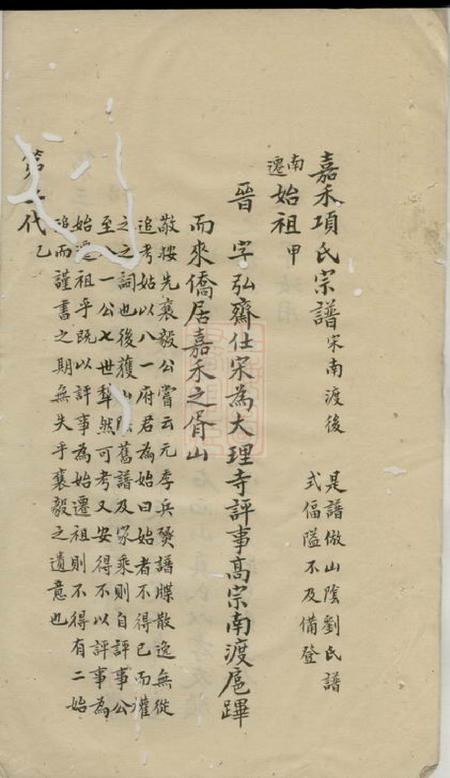 嘉禾項氏宗譜宋南渡後
是譜倣山陰劉氏譜
式偪隘不及備登
南遷始祖甲
晉 字弘齋仕宋為大理寺評事高宗南渡扈蹕
而來僑居嘉禾之胥山
敬按先襄毅公嘗云元季兵燹譜牒散逸無從
追考姑以八一府君為始曰始者不得已而權
之之詞也後獲山陰舊譜及家乘則自評事公
至一公七世犂然可考又安得不以評事為
始遷祖乎既以評事為始遷祖則不得有二始
追而謹書之期無失乎襄毅之遺意也
第 代乙